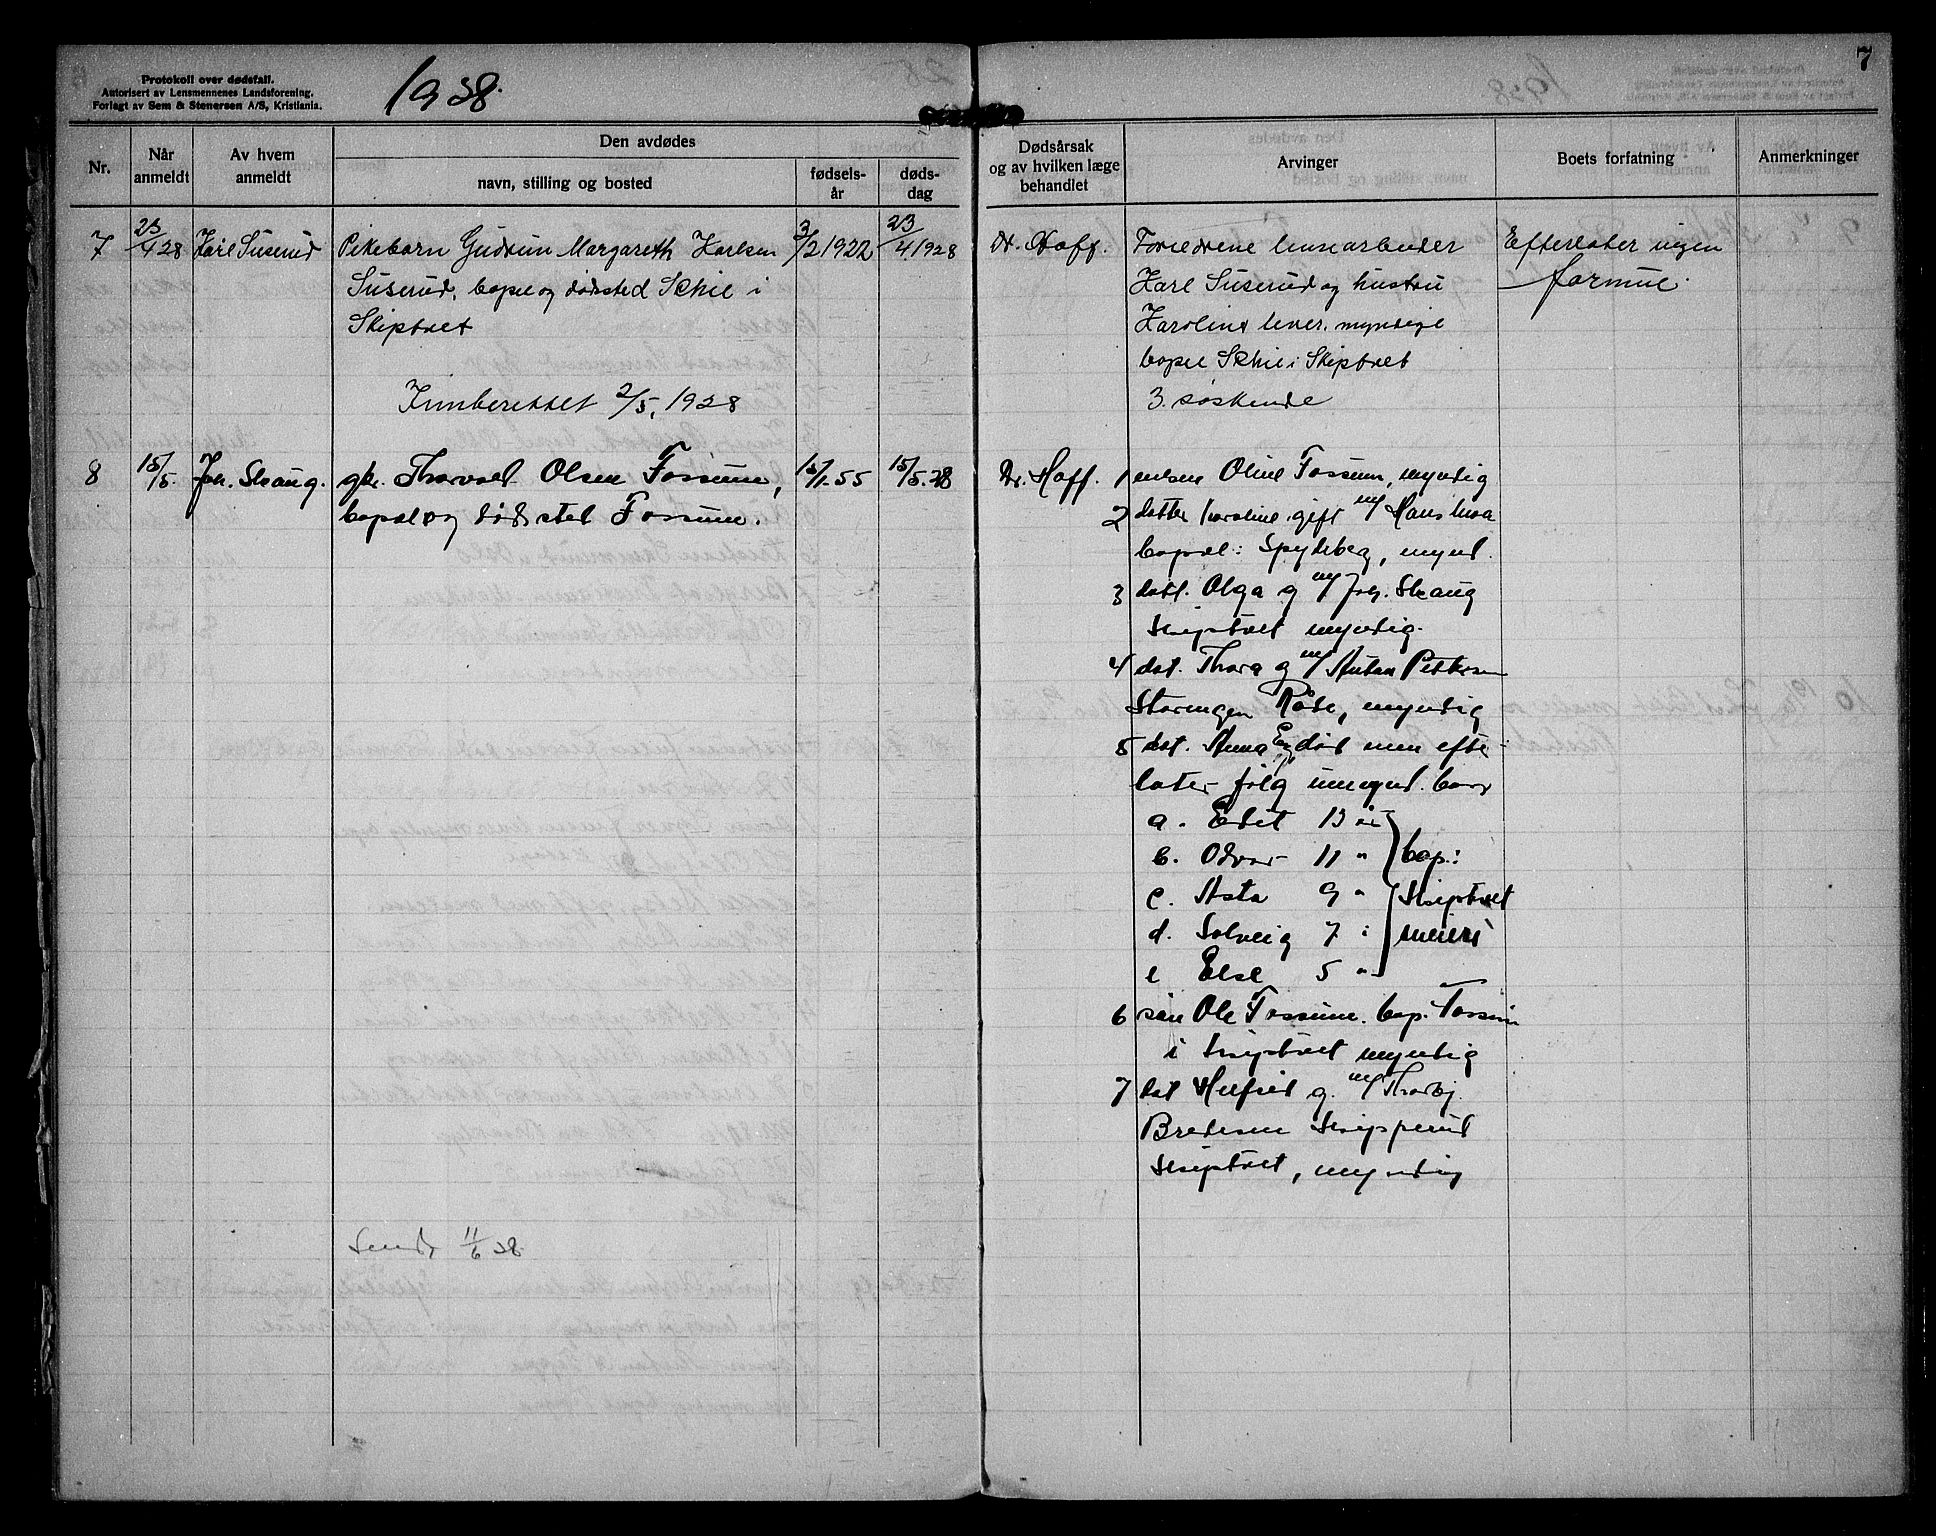 Protokoll over dødsfall.
Autorisert av Lensmennenes Landsforening.
Forlagt av Sem & Stenersen A/S, Kristiania.
1938.
Nr.
Når anmeldt
Av hvem anmeldt
Den avdødes
navn, stilling og bosted
fødselsår
dødsdag
7
23/4 28
Karl Suserud
Pikebarn Gudrun Margareth Karlsen
Suserud, bopel og dødsted Skhie i
Skiptvet
3/2 1922
23/4 1928
Innberettet 2/5. 1928
8
15/5.
Joh. Skaug.
gbr. Thorvald Olsen Fossum,
bopel og dødsted Fossum.
15/5. 28
Sendt 11/6 28.
7
Dødsårsak
og av hvilken læge
behandlet
Arvinger
Boets forfatning
Anmerkninger
Dr. Hoff.
Foreldrene
Karl Suserud og hustru
Karoline lever. myndige
bopel Skhie i Skiptvet
3. søskende
Efterlater ingen
formue.
Dr. Hoff.
1 enken Oline Fossum, myndig
2 datter Karoline gift m/ Hans Moa
bopel: Spydeberg, mynd.
3 datt. Olga g m/ Joh. Skaug
Skiptvet myndig.
4 dat. Thora g m/ Anton Pettersen
Storengen Råde, myndig
5 dat. Anna Eg død men efter-
later følg umynd. barn
a. Edit 13 år
b. Odvar 11 " bop:
c. Asta 9 " Skiptvet
d. Solveig 7 " meieri
e Else 5 "
6 søn Ole Fossum. bop. Fossum
i Skiptvet myndig
7 dat g. m/ Thorbj.
Bredesen Skipperud
Skiptvet, myndig